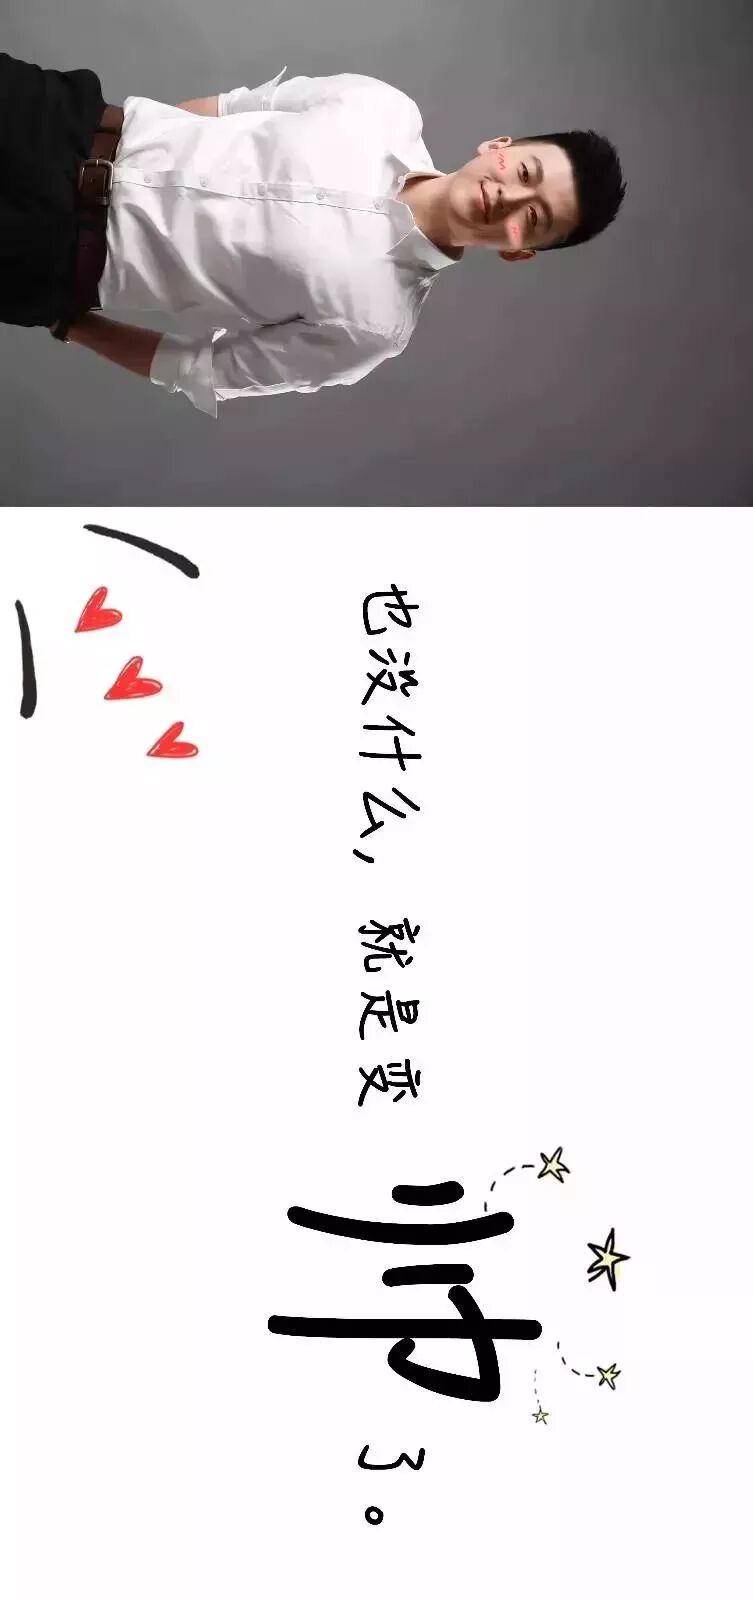 也没什么,就是变帅了。